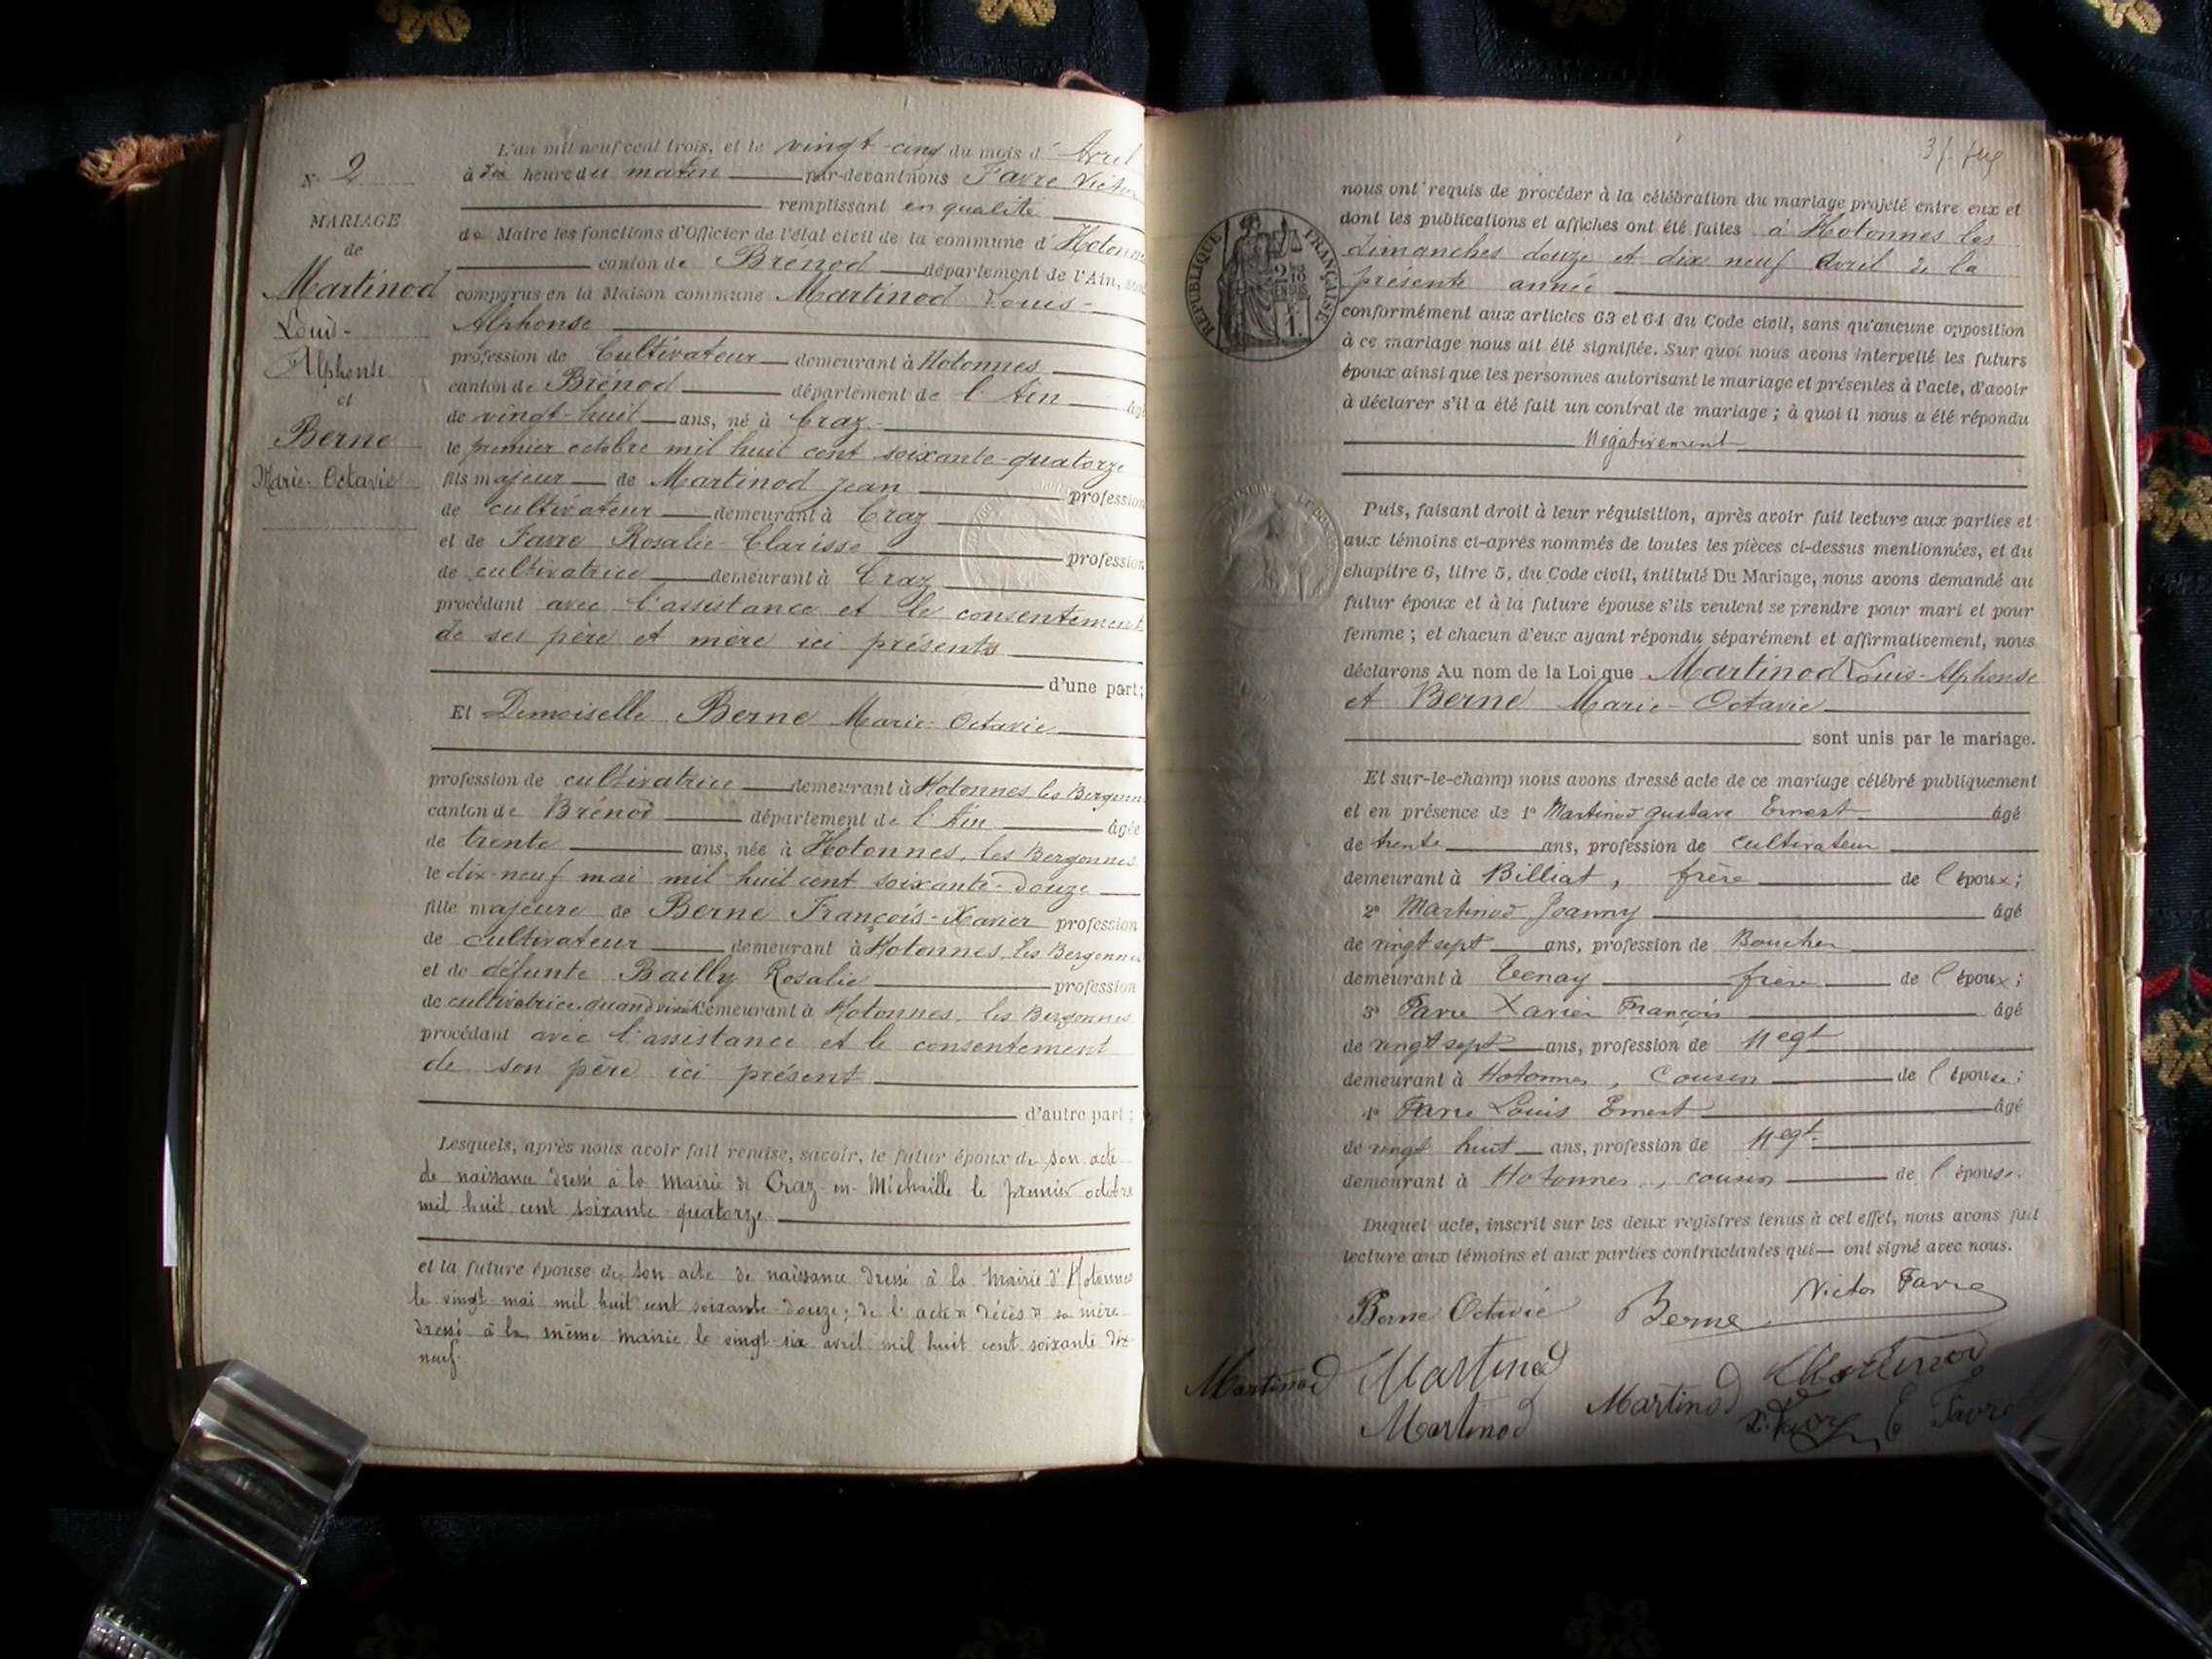 N° 2
MARIAGE
de
Martinod
Louis-
Alphonse
et
Berne
Marie-Octavie
L'an mil neuf cent trois, et le vingt-cinq du mois d' Avril
à dix heure du matin par-devant nous Favre Victor
remplissant en qualité
de Maire les fonctions d'Officier de l'état civil de la commune d' Hotonnes
canton de Brénod département de l'Ain, sont
comparus en la Maison commune Martinod Louis-
Alphonse
profession de Cultivateur demeurant à Hotonnes
canton de Brénod département de l'Ain âgé
de vingt-huit ans, né à Craz
le premier octobre mil huit cent soixante-quatorze
fils majeur de Martinod Jean profession
de cultivateur demeurant à Craz
et de Favre Rosalie-Clarisse profession
de cultivatrice demeurant à Craz
procédant avec l'assistance et le consentement
de ses père et mère ici présents
d'une part;
Et Demoiselle Berne Marie-Octavie
profession de cultivatrice demeurant à Hotonnes les Bergonnes
canton de Brénod département de l'Ain âgée
de trente ans, née à Hotonnes, les Bergonnes
le dix-neuf mai mil huit cent soixante-douze
fille majeure de Berne François-Xavier profession
de cultivateur demeurant à Hotonnes, les Bergonnes
et de défunte Bailly Rosalie profession
de cultivatrice quand vivait demeurant à Hotonnes, les Bergonnes
procédant avec l'assistance et le consentement
de son père ici présent
d'autre part;
Lesquels, après nous avoir fait remise, savoir, le futur époux de son acte
de naissance dressé à la mairie de Craz-en-Michaille le premier octobre
mil huit cent soixante-quatorze
et la future épouse de son acte de naissance dressé à la mairie d'Hotonnes
le vingt mai mil huit cent soixante-douze; de l'acte de décès de sa mère
dressé à la même mairie le vingt-six avril mil huit cent soixante dix-
neuf.
nous ont requis de procéder à la célébration du mariage projeté entre eux et
dont les publications et affiches ont été faites à Hotonnes les
dimanches douze et dix neuf Avril de la
présente année
conformément aux articles 63 et 64 du Code civil, sans qu'aucune opposition
à ce mariage nous ait été signifiée. Sur quoi nous avons interpellé les futurs
époux ainsi que les personnes autorisant le mariage et présentes à l'acte, d'avoir
à déclarer s'il a été fait un contrat de mariage; à quoi il nous a été répondu
Négativement
Puis, faisant droit à leur réquisition, après avoir fait lecture aux parties et
aux témoins ci-après nommés de toutes les pièces ci-dessus mentionnées, et du
chapitre 6, titre 5, du Code civil, intitulé Du Mariage, nous avons demandé au
futur époux et à la future épouse s'ils veulent se prendre pour mari et pour
femme; et chacun d'eux ayant répondu séparément et affirmativement, nous
déclarons Au nom de la Loi que Martinod Louis-Alphonse
et Berne Marie-Octavie
sont unis par le mariage.
Et sur-le-champ nous avons dressé acte de ce mariage célébré publiquement
et en présence de 1° Martinod Gustave Ernest âgé
de trente ans, profession de cultivateur
demeurant à Billiat, frère de l'époux;
2° Martinod Joanny âgé
de vingt sept ans, profession de Boucher
demeurant à Tenay frère de l'époux;
3° Favre Xavier François âgé
de vingt sept ans, profession de Negt
demeurant à Hotonnes, Cousin de l'épouse;
4° Favre Louis Ernest âgé
de vingt huit ans, profession de Negt
demeurant à Hotonnes, cousin de l'épouse.
Duquel acte, inscrit sur les deux registres tenus à cet effet, nous avons fait
lecture aux témoins et aux parties contractantes qui ont signé avec nous.
Berne Octavie Berne Victor Favre
Martinod Martinod L Martinod
Martinod Martinod X. Favre E Favre
REPUBLIQUE FRANÇAISE